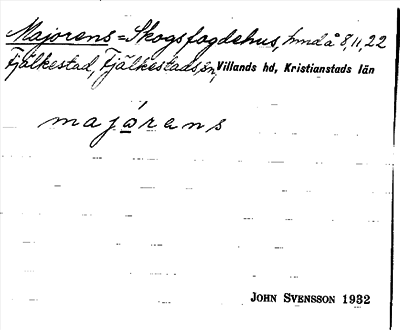 Majorens = Skogsfogdehus, hmd å 8, 11, 22
Fjälkestad, Fjälkestads sn, Villands hd, Kristianstads län
majorens
JOHN SVENSSON 1932